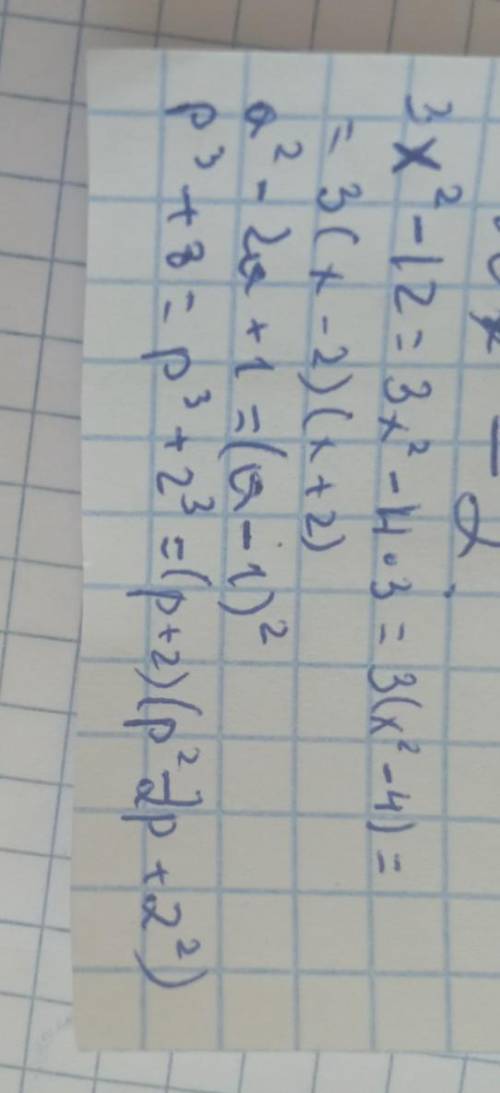 3x² - 12 = 3x² - 4 · 3 = 3(x² - 4) =
= 3(x - 2)(x + 2)
a² - 2a + 1 = (a - 1)²
p³ + 8 = p³ + 2³ = (p + 2)(p² - 2p + 2²)